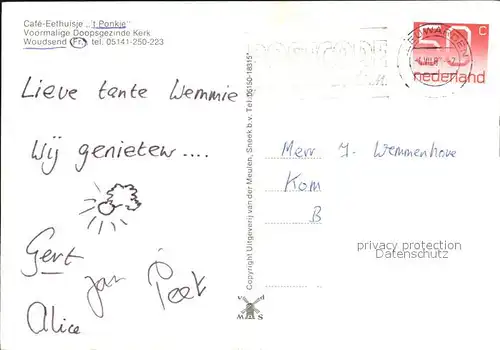 Café-Eethuisje „'t Ponkje"
Voormalige Doopsgezinde Kerk
Woudsend (Fr.) tel. 05141-250-223
Lieve tante Wemmie
Wij genieten....
Gert
Jan
Peet
Alice
Copyright Uitgeverij van der Meulen, Sneek b.v. Tel. 05150-18315*
50 C
nederland
LEEUWARDEN
Merr J. Wemmenhove
Kom
B
privacy protection
Datenschutz